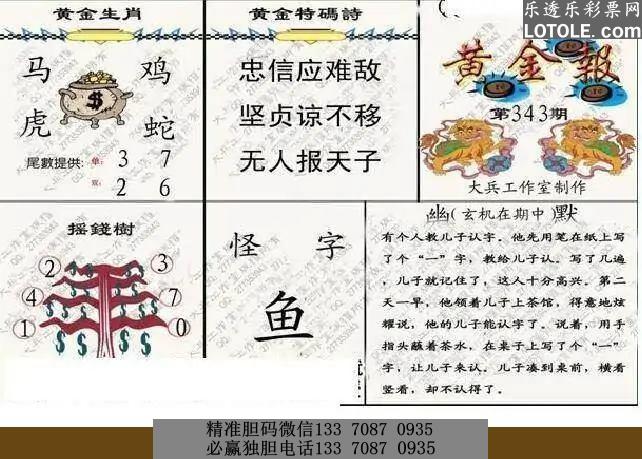 乐透乐彩票网
LOTOLE.COM
黄金生肖
马 鸡
虎 蛇
尾數提供: 单: 3 7
双: 2 6
黄金特碼詩
忠信应难敌
坚贞谅不移
无人报天子
黄金報
第343期
大兵工作室制作
摇錢樹
2 3
4 7
1 0
怪 字
鱼
幽(玄机在期中)默
有个人教儿子认字。他先用笔在纸上写
了个“一”字，教给儿子认。写了几遍
，儿子就记住了，这人十分高兴。第二
天一早，他领着儿子上茶馆，得意地炫
耀说，他的儿子能认字了。说着，用手
指头蘸着茶水，在桌子上写了个“一”
字，让儿子来认。儿子凑到桌前，横看
竖看，却不认得了。
精准胆码微信133 7087 0935
必赢独胆电话133 7087 0935